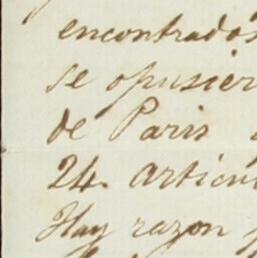 encontrados
se opusier
de Paris
24. articu
Hay razon